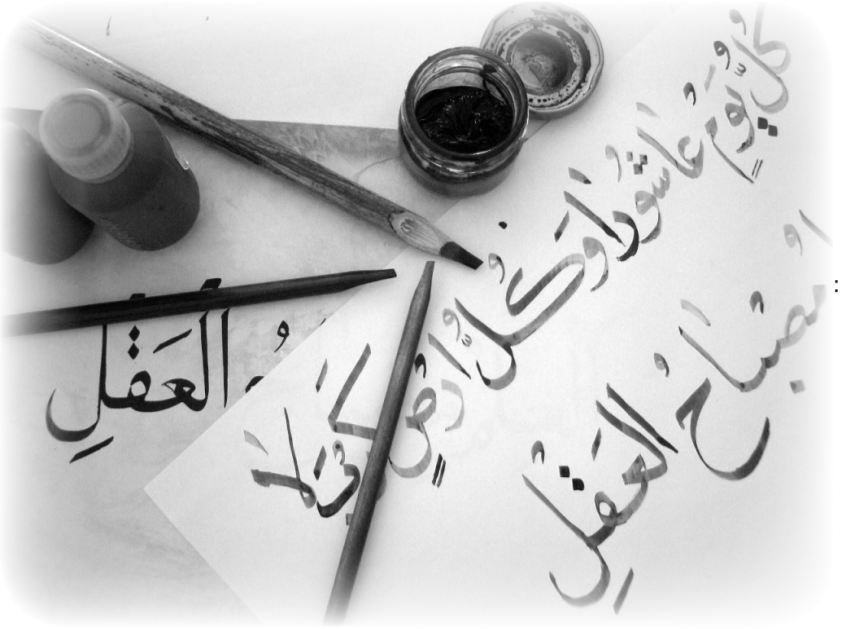 كُلُّ يَوْمٍ عَاشُورَا وَكُلُّ ارْضٍ كَربَلَا
مُصبَاحُ العَقلِ
العَقلِ